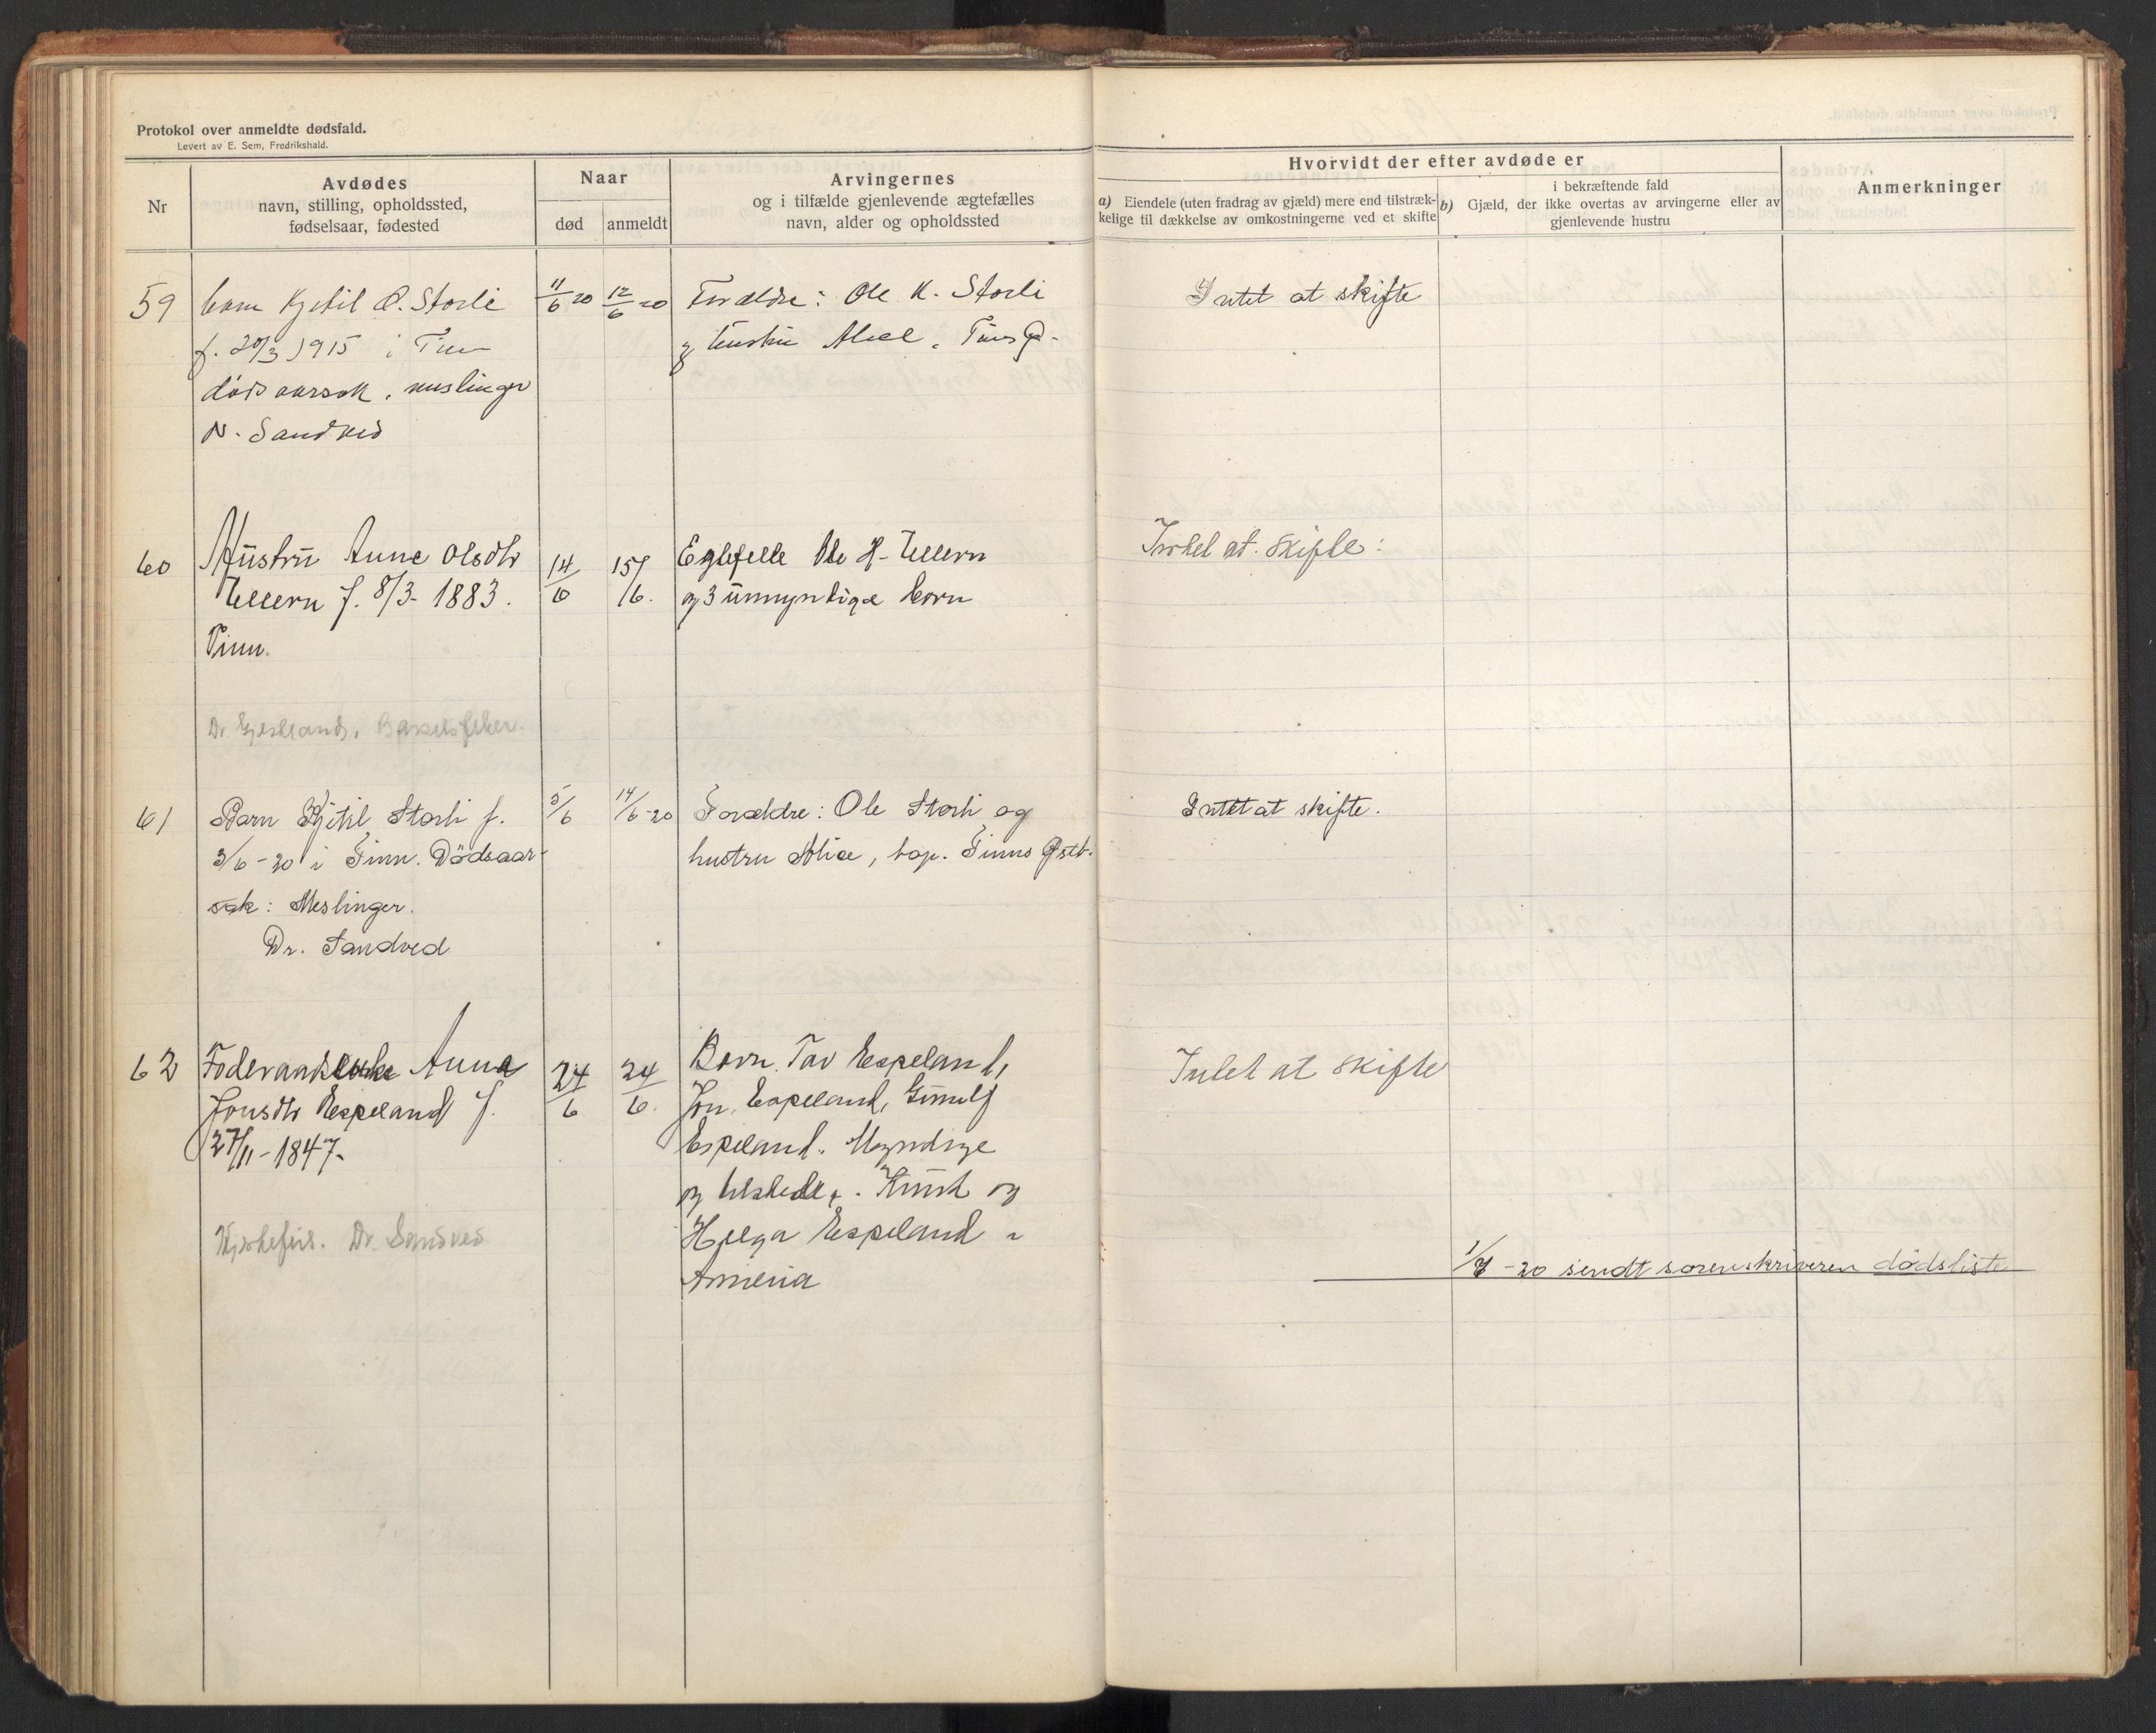 Protokol over anmeldte dødsfald.
Levert av E. Sem, Fredrikshald.
Nr
Avdødes
navn, stilling, opholdssted,
fødselsaar, fødested
Naar
død
anmeldt
Arvingernes
og i tilfælde gjenlevende ægtefælles
navn, alder og opholdssted
Hvorvidt der efter avdøde er
a) Eiendele (uten fradrag av gjæld) mere end tilstræk-
kelige til dækkelse av omkostningerne ved et skifte
i bekræftende fald
b) Gjæld, der ikke overtas av arvingerne eller av
gjenlevende hustru
Anmerkninger
59 barn Kjetil O. Storli 11/6 20 12/6 20 Forældre: Ole K. Storli Intet at skifte
f. 20/3 1915 i Tinn og hustru
dødsaarsak,
Sandved
60 Hustru Anne Olsdtr 14/6 15/6. Egtefelle Ole H. Intet at skifte:
f. 8/3-1883. og 3 umyndige born
Tinn.
Dr.
61 Barn Kjetil Storli f. 5/6 14/6-20 Forældre: Ole Storli og Intet at skifte.
3/6-20 i Tinn. Dödsaar- hustru Alice, bop. Tinns Østb.
sak: Meslinger.
Dr. Sandved
62 Foderaadsenke Anna 24/6 24/6. Born. Tov Espeland, Intet at skifte
Jonsdtr Espeland f. Jon Espeland, Gunulf
27/11-1847- Espeland. Myndige
og tilstede. Knut og
Kjertefeil. Dr. Sandved Helga Espeland i
Amerika
1/7-20 sendt sorenskriveren dødsliste